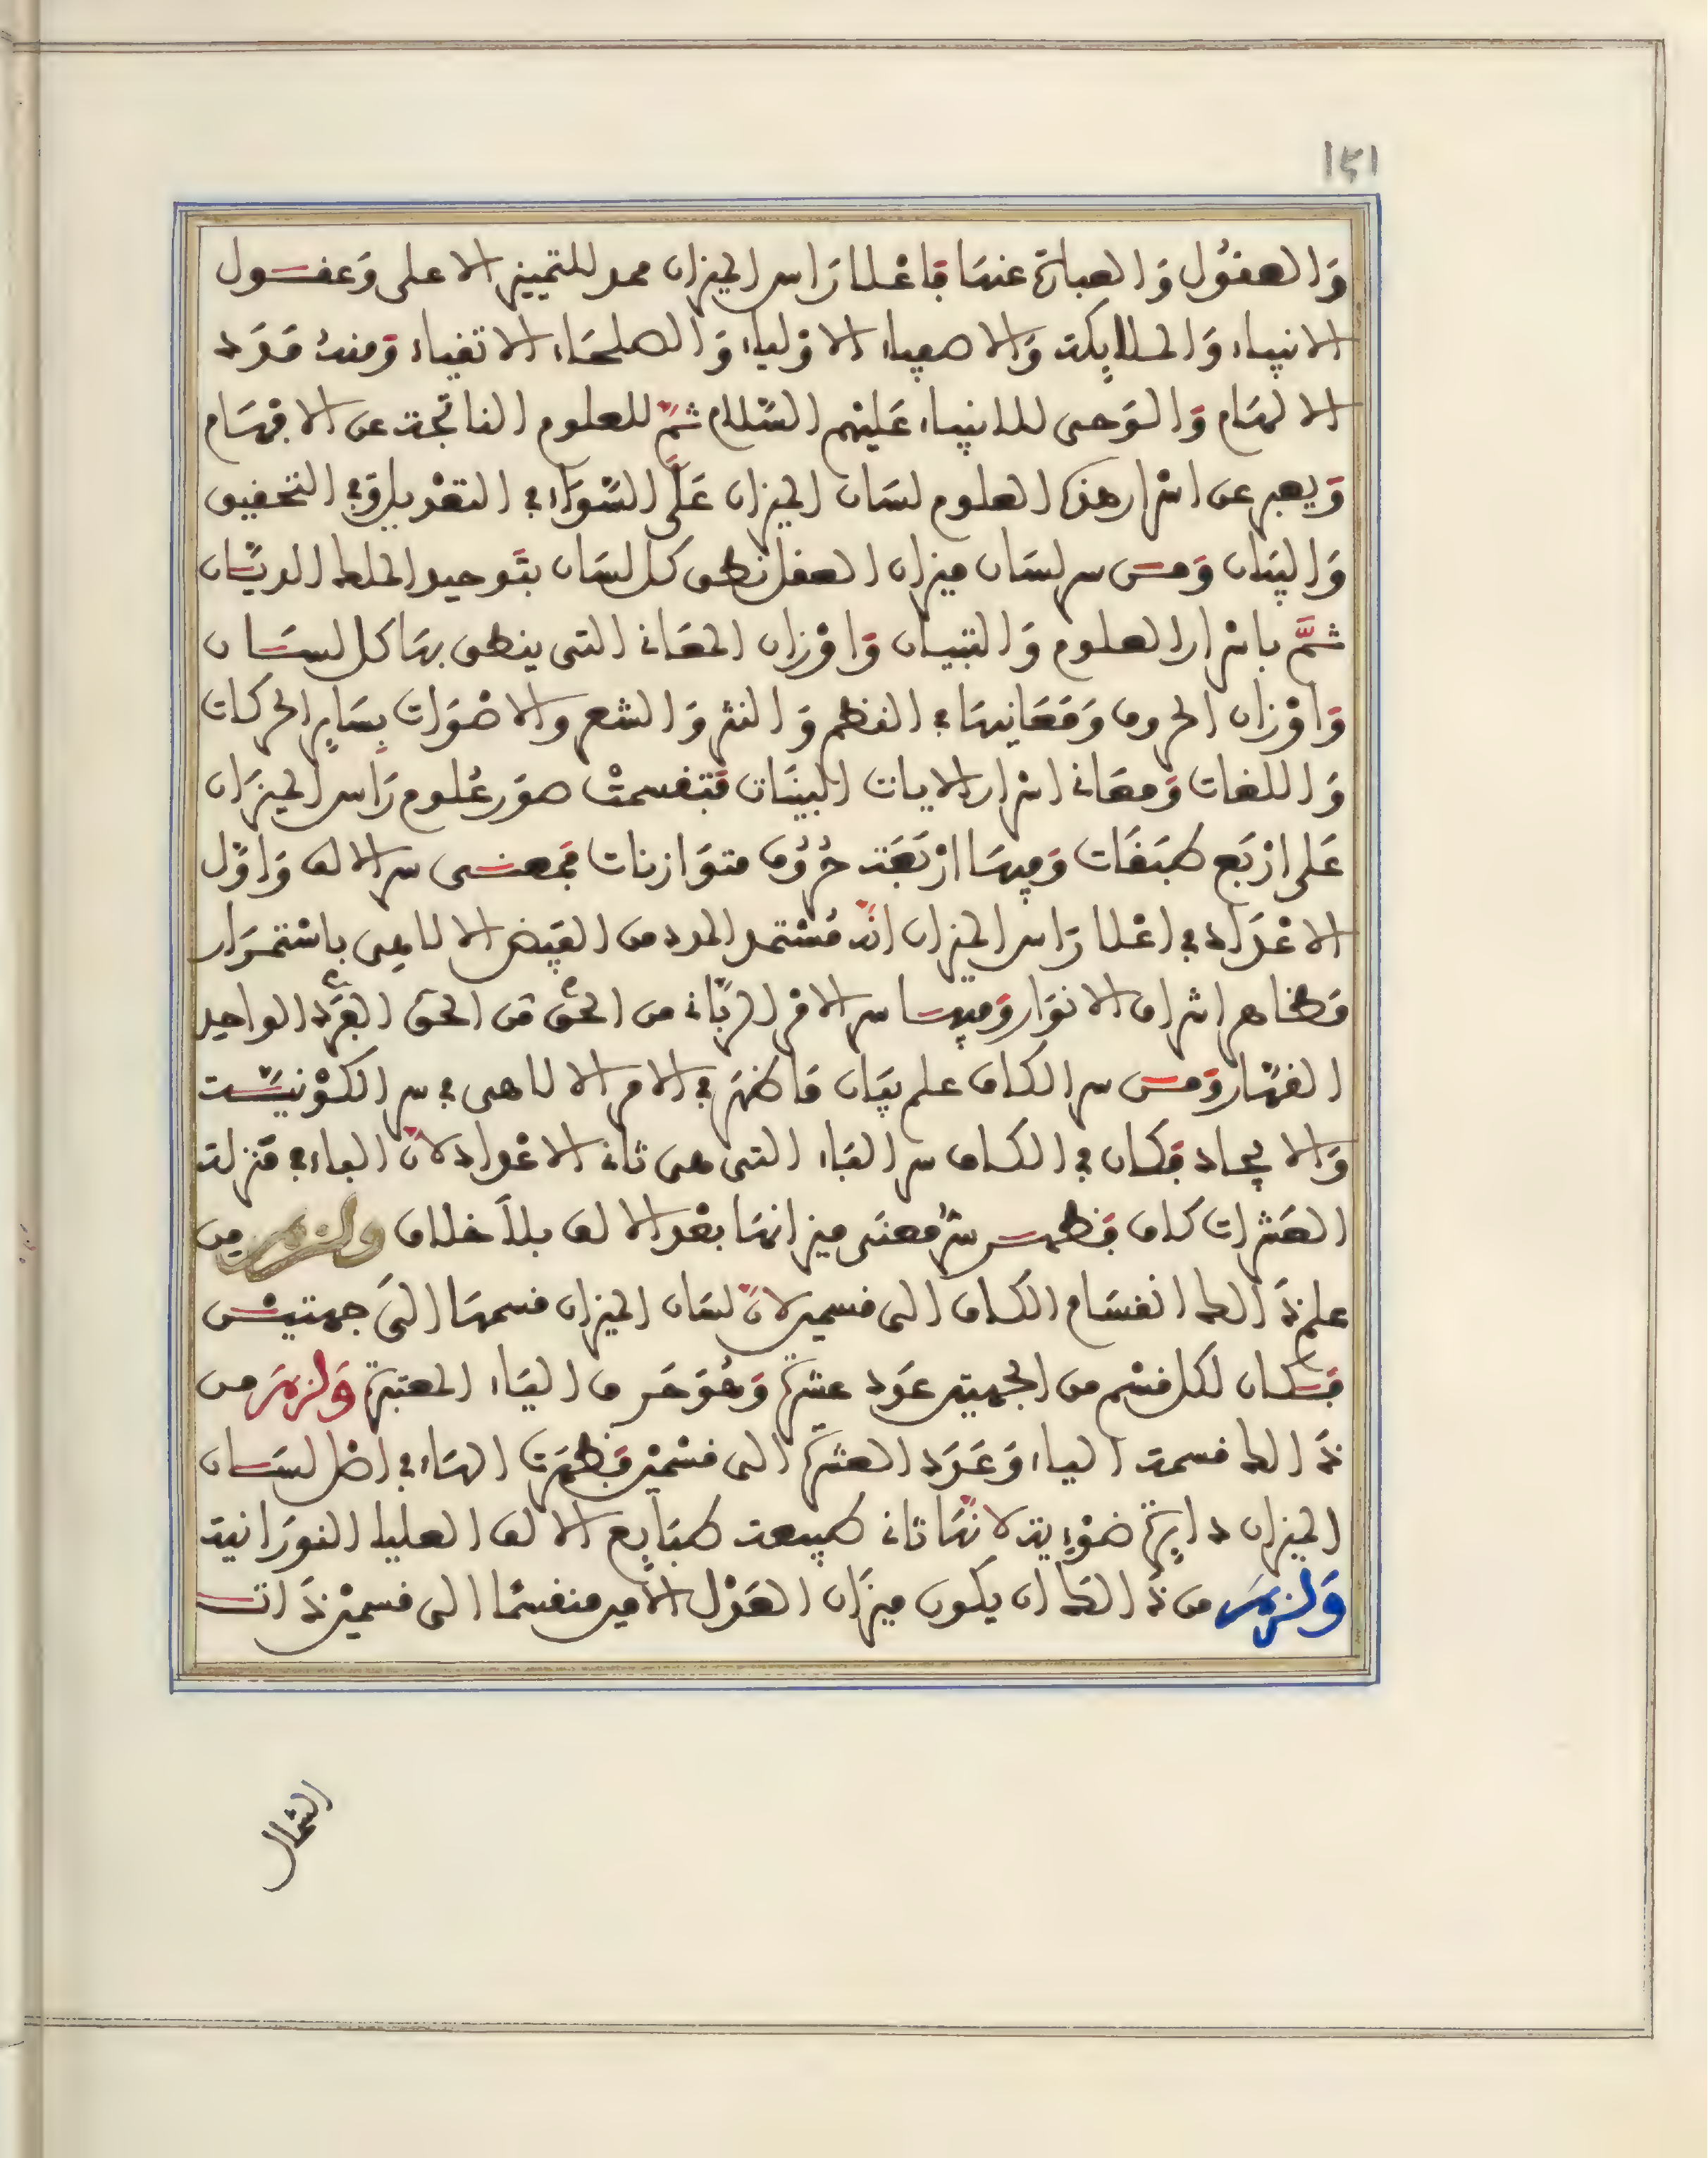 151
وَالعقُول وَالعبارة عنها فاعْلا رَاس الميزان ممد للتمييز الاعلى وَعقول
الانبياء وَالملايكة وَالاصفياء الاوْلياء وَالصلحَاء الاتقياء وَمنه مَدَد
الالهَام وَالوَحى للانبياء عَليْهم السَّلام ثمَّ للعلوم الناتجة عن الافهَام
وَيعبر عن اسْرار هذه العلوم لسَان الميزان عَلَى السَّوَاء في التعْديل وَفي التحقيق
وَالبيَان وَمن سر لسَان ميزان العقل نطق كل لسَان بتَوحيد الملك الديَّان
ثمَّ باسْرار العلوم وَالتبيان وَاوْزان المعَاني التي ينطق بهَا كل لسَان
وَاوْزان الحروف وَمَعَانيهَا في النظم وَالنثر وَالشعر والاصْوَات بسَاير الحركات
وَاللغات وَمعَاني اسْرار الايات البينَات فتقسمتْ صوَر عُلوم رَاس الميزَان
عَلى ارْبَع طبَقَات وَفيهَا ارْبَعَة حُرُوف متوَازنات فمعنى سر الالف وَاوَّل
الاعْدَاد في اعْلا رَاس الميزان انَّه مُسْتمد المدد من الفيض الالاهِى باسْتمرَار
مَظاهر اشراق الانوَار وَفيها سر الامْر الربَّاني من الحىّ من الحىّ الفَرْد الواحِد
القهَّار وَمن سر الكاف علم بيَان مَا ظهَر في الامر الالاهى في سر الكوْنيَّة
وَالايجاد فكان في الكاف سر البَاء التى هى ثاني الاعْداد لانَّ الباء في مَنزلة
العَشرات كاف فظهر سرُّ معنَى ميزانهَا بعْد الالف بلاَ خلاف ولزم مِن
علم ذَالك انقسَام الكاف الى قسمين لانَّ لسَان الميزان قسمهَا الَى جهتيْن
فَكان لكل قسْم من الجهتين عَدد عشرة وَهُوَ حَرف اليَاء المعتبَرة وَلزمَ من
ذَالك قسمة الياء وَعَدَد العشرَة الى قسْميْن فَظهَرت الهَاء في اصْل لسَان
الميزان دايرة ضوْءِية لانهَّا ثاني طبيعة طبَايع الالف العليا النورَانية
وَلزمَ من ذَالكَ ان يكون ميزَان العَدْل الامِير منقسمًا الى قسميْن ذَات
الشمال